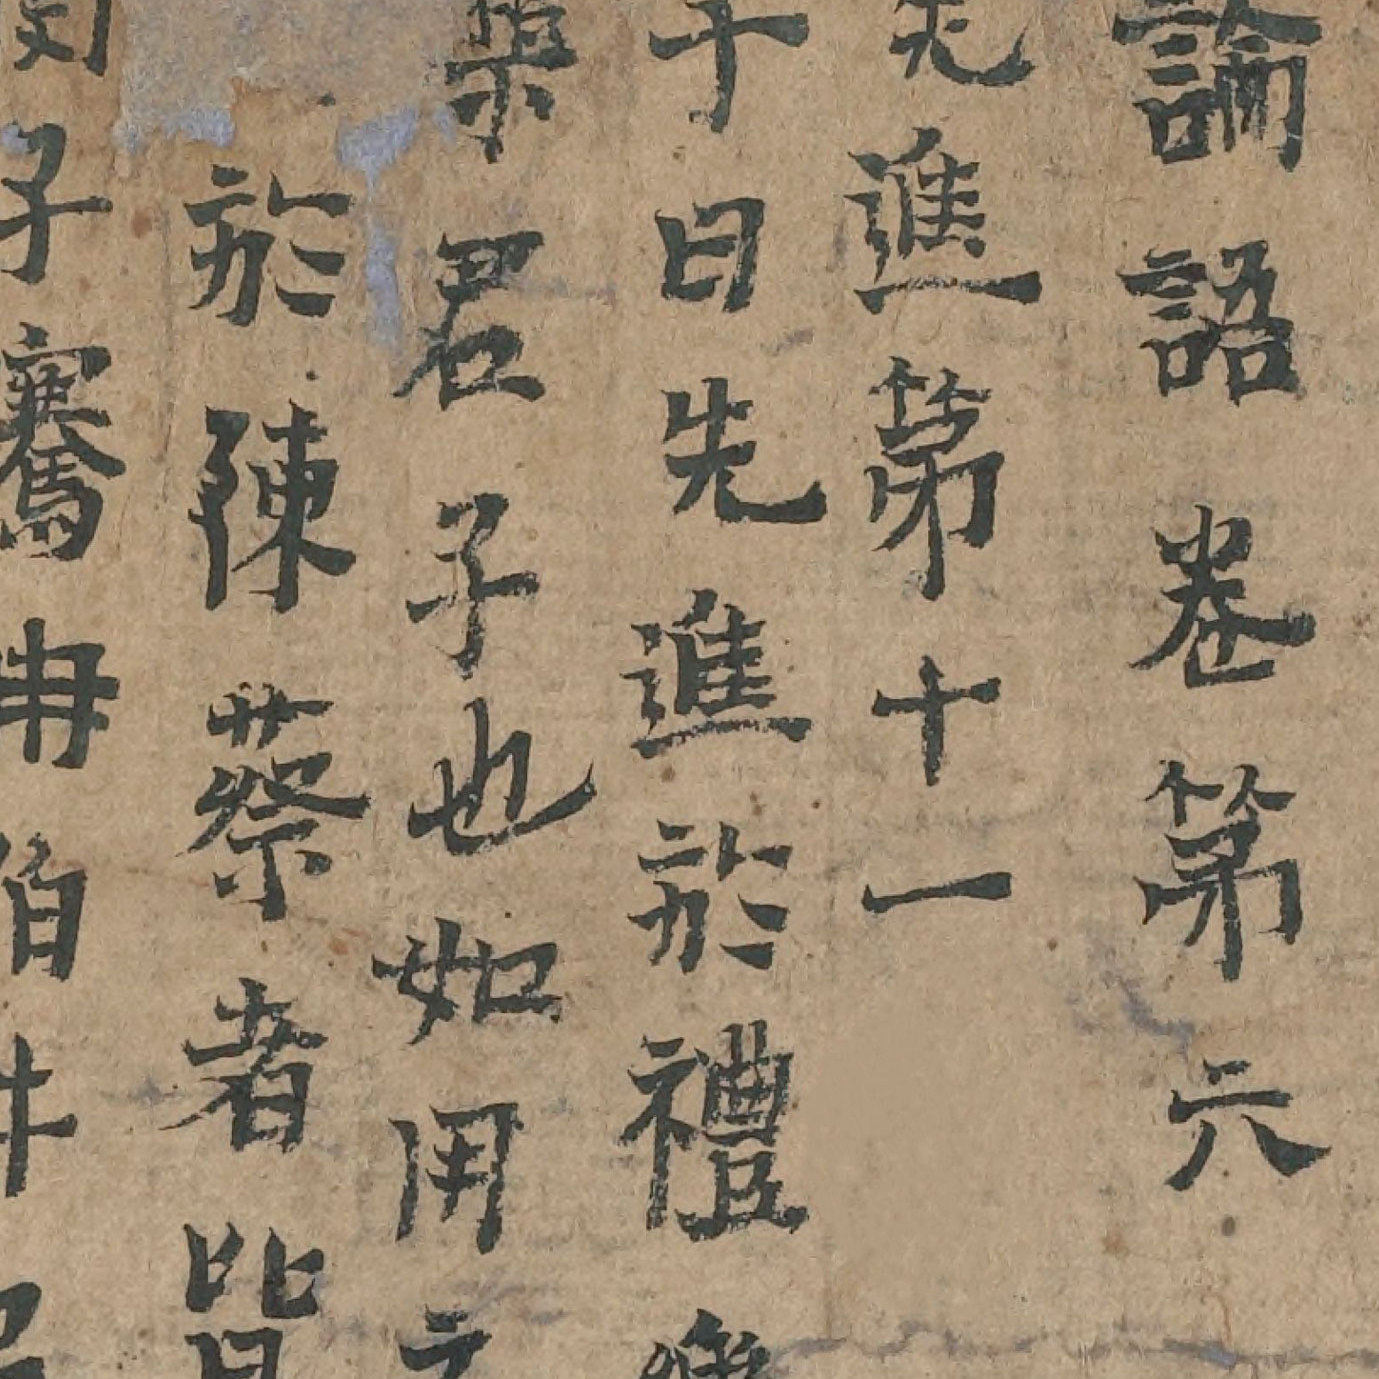 論語卷第六
先進第十一
子曰先進於禮樂
樂君子也如用之
於陳蔡者皆
閔子騫冉伯牛